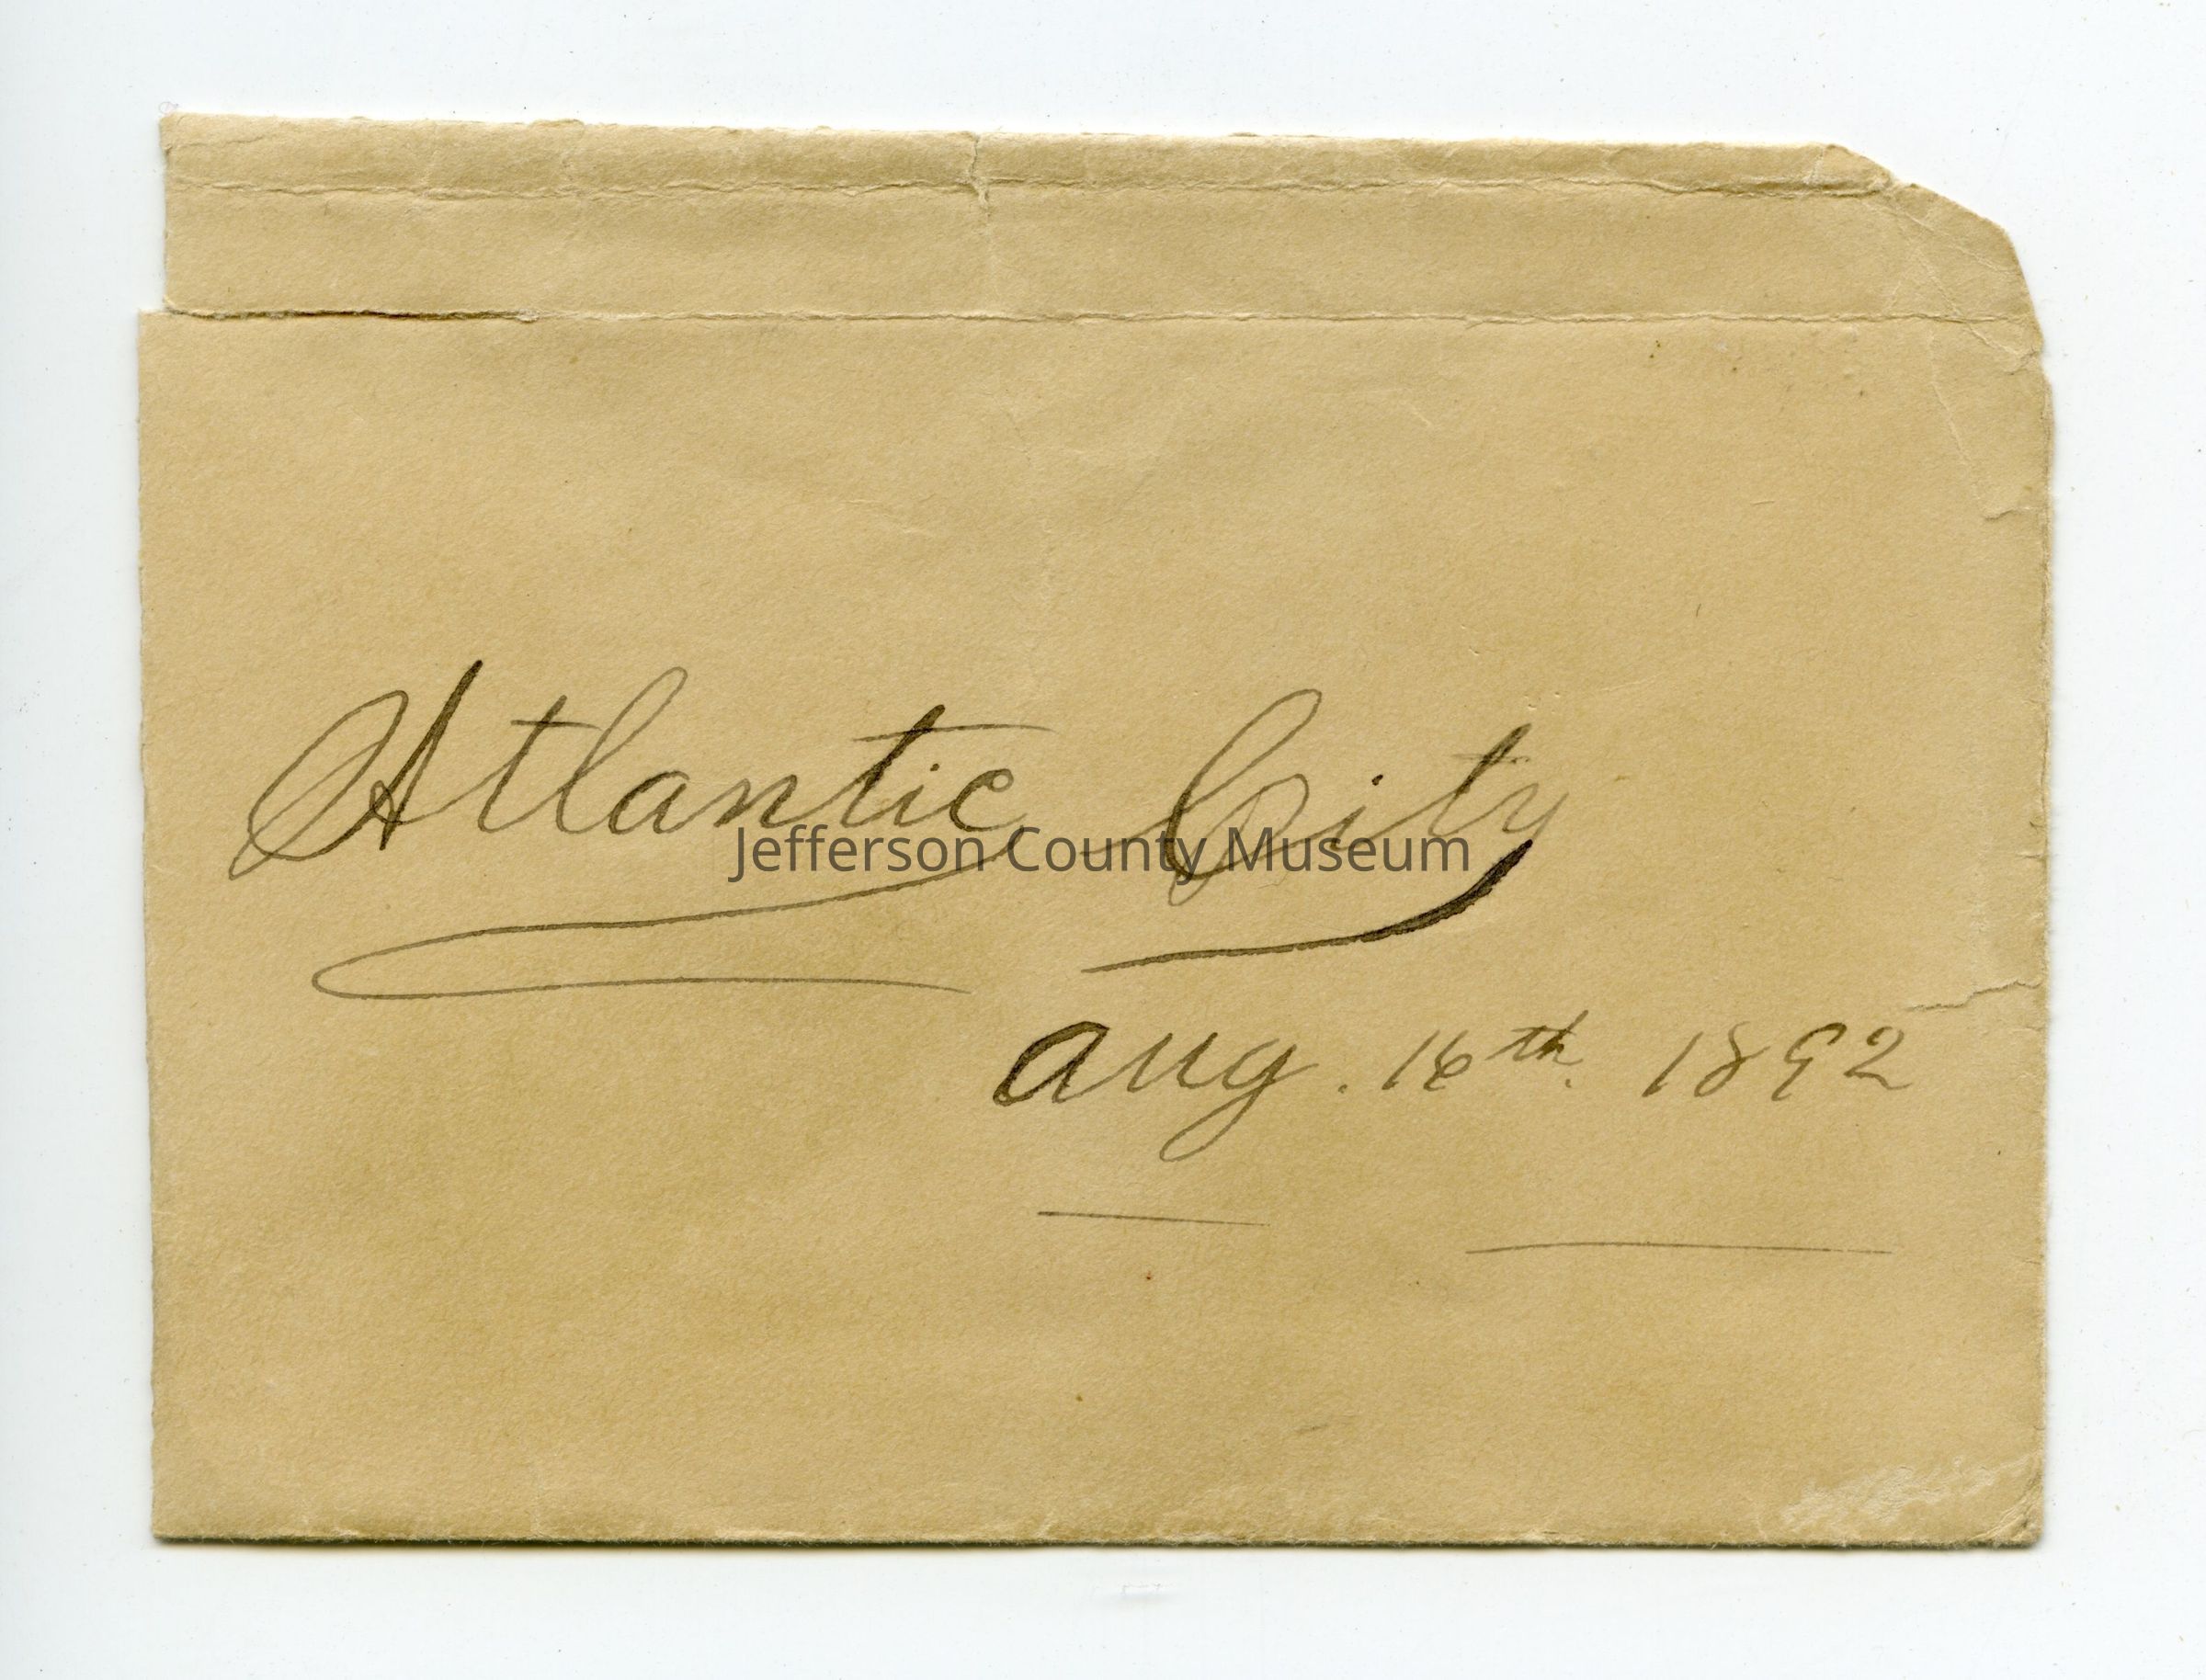 Atlantic City
Jefferson County Museum
Aug. 16th. 1892